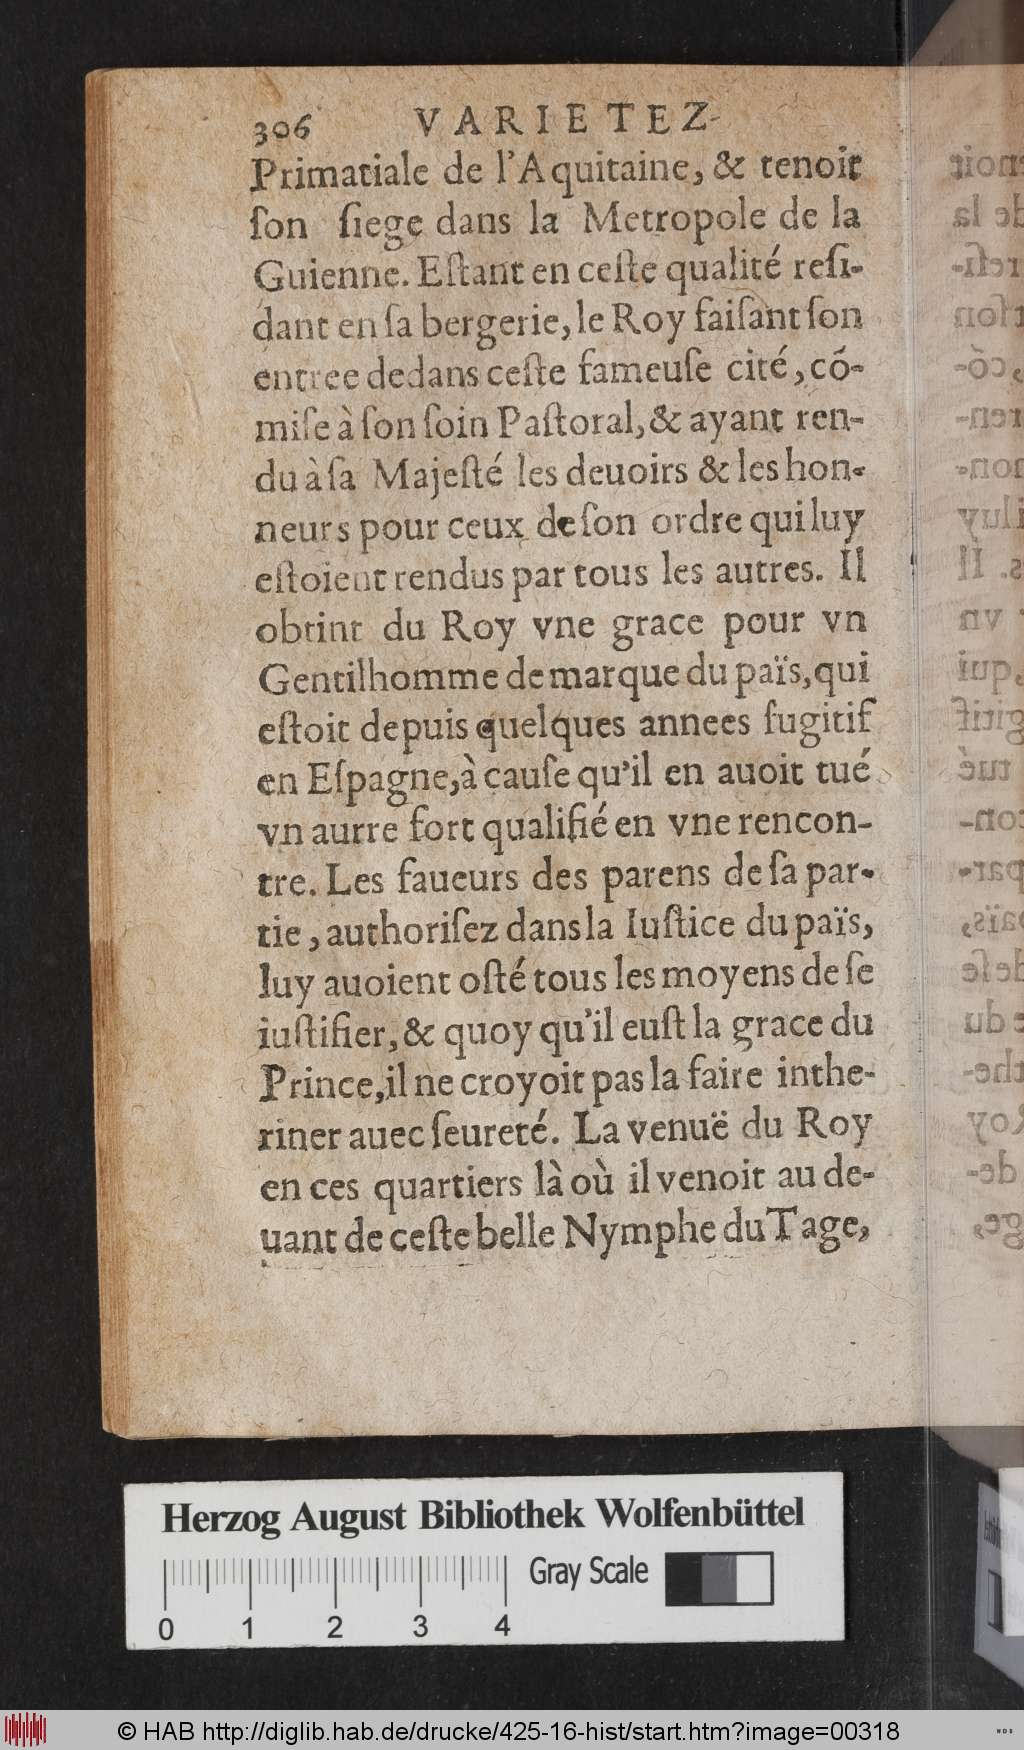 306 VARIETEZ
Primatiale de l'Aquitaine, & tenoit
ſon ſiege dans la Metropole de la
Guienne. Eſtant en ceſte qualité reſi-
dant en ſa bergerie, le Roy faiſant ſon
entree dedans ceſte fameuſe cité, cõ-
miſe à ſon ſoin Paſtoral, & ayant ren-
du à ſa Majeſté les deuoirs & les hon-
neurs pour ceux de ſon ordre qui luy
eſtoient rendus par tous les autres. Il
obtint du Roy vne grace pour vn
Gentilhomme de marque du païs, qui
eſtoit depuis quelques annees fugitif
en Eſpagne, à cauſe qu'il en auoit tué
vn autre fort qualifié en vne rencon-
tre. Les faueurs des parens de ſa par-
tie, authoriſez dans la Iuſtice du païs,
luy auoient oſté tous les moyens de ſe
iuſtifier, & quoy qu'il euſt la grace du
Prince, il ne croyoit pas la faire inthe-
riner auec ſeureté. La venuë du Roy
en ces quartiers là où il venoit au de-
uant de ceſte belle Nymphe du Tage,
Herzog August Bibliothek Wolfenbüttel
Gray Scale
0 1 2 3 4
© HAB http://diglib.hab.de/drucke/425-16-hist/start.htm?image=00318